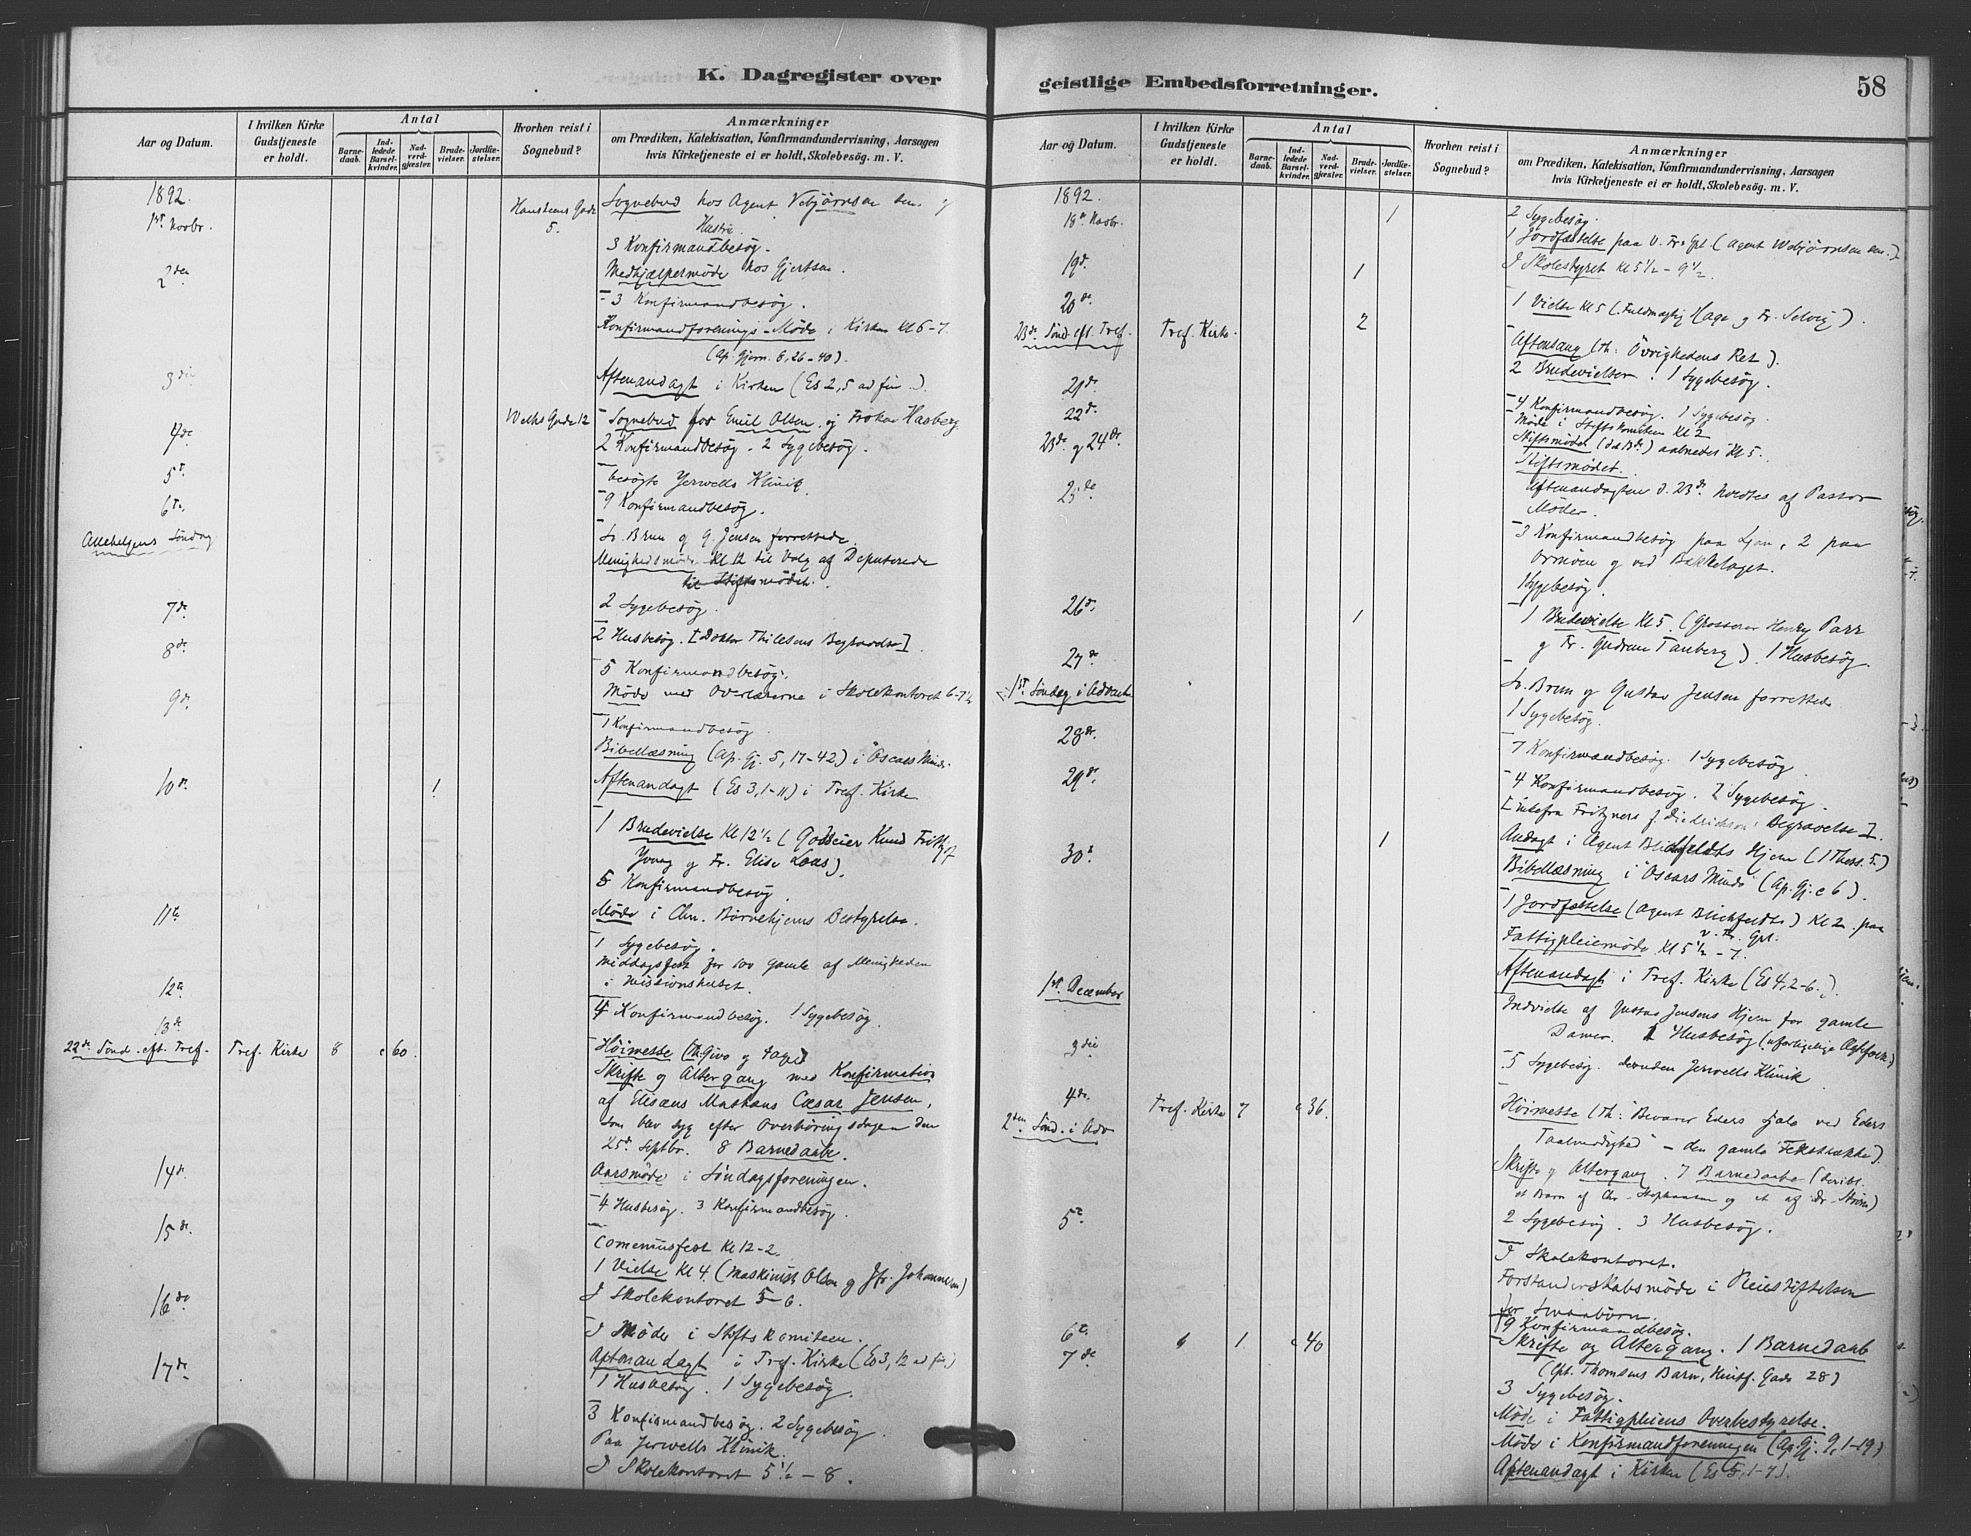 K. Dagregister over
Aar og Datum.
I hvilken Kirke Gudstjeneste er holdt.
Antal
Barnedaab.
Indledede Barselkvinder.
Nadverdgjester.
Brudevielser.
Jordfæstelser.
Hvorhen reist i Sognebud?
Anmærkninger
om Prædiken, Katekisation, Konfirmandundervisning, Aarsagen
hvis Kirketjeneste ei er holdt, Skolebesög. m. V.
1892.
1st Novbr.
5.
Sognebud hos Agent Vebjørnsen sen. og
Hustru.
3 Konfirmandbesøg.
2den
Medhjælpermøde hos Gjertsen.
3 Konfirmandbesøg.
Konfirmandforenings-Møde i Kirken Kl 6-7.
(Ap. Gjern. 6, 26-40).
3die
Aftenandagt i Kirken (Es 2, 5 ad fin.).
4de
Gade 12
Sognebud for Emil Olsen og Frøken Hasberg
2 Konfirmandbesøg. 2 Sygebesøg.
5t.
besøgte Jerwells Klinik.
6te.
9 Konfirmandbesøg.
Allehelgens Søndag
Br. Brun og G. Jensen forrettede.
Menighedsmøde Kl 12 til Valg af Deputerede
til Stiftsmødet.
7de
2 Sygebesøg.
2 Husbesøg. [Doktor Thilesens Begravelse]
8de.
5 Konfirmandbesøg.
Møde med Overlærerne i Skolekontoret 6-7½
9de
1 Konfirmandbesøg
Bibellæsning (Ap. Gj. 5, 17-42) i "Oscars Minde"
10de.
1
Aftenandagt (Es 3, 1-11) i Tref. Kirke
1 Brudevielse Kl 12½ (Godseier Knud Frithjof
og Fr. Elise Loos).
5 Konfirmandbesøg
11te
Møde i Chr. Børnehjems Bestyrelse.
1 Sygebesøg.
Middagsfest for 100 gamle af Menigheden
i Missionshuset.
12te.
4 Konfirmandbesøg. 1 Sygebesøg.
13de
22de Sønd. eft. Tref.
Tref. Kirke
8
c 60.
Høimesse
Skrifte og Altergang med Konfirmation
af Cæsar Jensen,
som blev syg efter Overhøringsdagen den
25de Septbr. 8 Barnedaab.
14de
Aarsmøde i Søndagsforeningen.
4 Husbesøg. 3 Konfirmandbesøg.
15de.
Comeniusfest Kl 12-2.
1 Vielse Kl 4. (Maskinist Olsen og Jfr. Johannesen)
I Skolekontoret 5-6.
16de
I Møde i Stiftskomiteen.
Aftenandagt i Tref. Kirke (Es 3, 12 ad fin)
1 Husbesøg. 1 Sygebesøg.
17de.
3 Konfirmandbesøg. 2 Sygebesøg.
Paa Jerwells Klinik.
I Skolekontoret 5½-8.
geistlige Embedsforretninger.
58
Aar og Datum.
I hvilken Kirke Gudstjeneste er holdt.
Antal
Barnedaab.
Indledede Barselkvinder.
Nadverdgjester.
Brudevielser.
Jordfæstelser.
Hvorhen reist i Sognebud?
Anmærkninger
om Prædiken, Katekisation, Konfirmandundervisning, Aarsagen
hvis Kirketjeneste ei er holdt, Skolebesög. m. V.
1892.
18de Novbr.
1
2 Sygebesøg.
1 Jordfæstelse paa V. Fr. Grl. (Agent Webjørnsen sen.)
19de.
1
I Skolestyret Kl 5½-9½.
20de.
1 Vielse Kl 5 (Fuldmægtig Hage og Fr. Selvig).
23de Sønd. eft. Tref.
Tref. Kirke.
2
Aftensang (Th: Øvrighedens Ret).
2 Brudevielser. 1 Sygebesøg.
21de.
4 Konfirmandbesøg. 1 Sygebesøg.
22de.
Møde i Stiftskomiteen Kl 2
Stiftsmødet aabnedes Kl 5.
23de og 24de.
Stiftsmødet.
Aftenandagten d. 23de holdtes af Pastor
Møller.
25de
3 Konfirmandbesøg paa Ljan, 2 paa
Ormøen og ved Bækkelaget.
1 Sygebesøg.
26de.
1
1 Brudevielse Kl 5. (Grosserer Henry Parr
og Fr. Gudrun Tanberg). 1 Husbesøg.
27de.
1st Søndag i Advent
Br. Brun og Gustav Jensen forrettede
1 Sygebesøg.
28de.
7 Konfirmandbesøg. 1 Sygebesøg.
29de.
4 Konfirmandbesøg. 2 Sygebesøg.
Begravelse].
30te
1
Andagt i Agent Blichfeldts Hjem (1 Thess. 5.)
Bibellæsning i "Oscars Minde" (Ap. Gj. c 6).
1 Jordfæstelse (Agent Blichfeldts) Kl 2. paa
V. Fr. Grl.
Fattigpleiemøde Kl 5½-7.
1st. December
Aftenandagt i Tref. Kirke (Es 4, 2-6.).
Indvielse af Gustav Jensens Hjem for gamle
Damer. 1 Husbesøg
3die
5 Sygebesøg. desuden Jerwells Klinik.
4de.
2den Sønd. i Adv
Tref. Kirke
7
c 36.
Høimesse (Th: "Bevarer Eders Sjæle ved Eders
Taalmodighed" - den gamle Textrække).
Skrifte og Altergang. 7 Barnedaab
et Barn af Chr. Stephansen og et af Dr. Strøm)
5te.
2 Sygebesøg. 3 Husbesøg.
I Skolekontoret.
Forstanderskabsmøde i Pleiestiftelsen
for Smaabørn.
9 Konfirmandbesøg.
6te.
1
c 40
Skrifte og Altergang. 1 Barnedaab
7de
(Cpt. Thomsens Barn, Gade 28)
3 Sygebesøg.
Møde i Fattigpleiens Overbestyrelse.
Møde i Konfirmandforeningen (Ap. Gj. 9, 1-19)
Aftenandagt i Kirken (Es 5, 1-7).